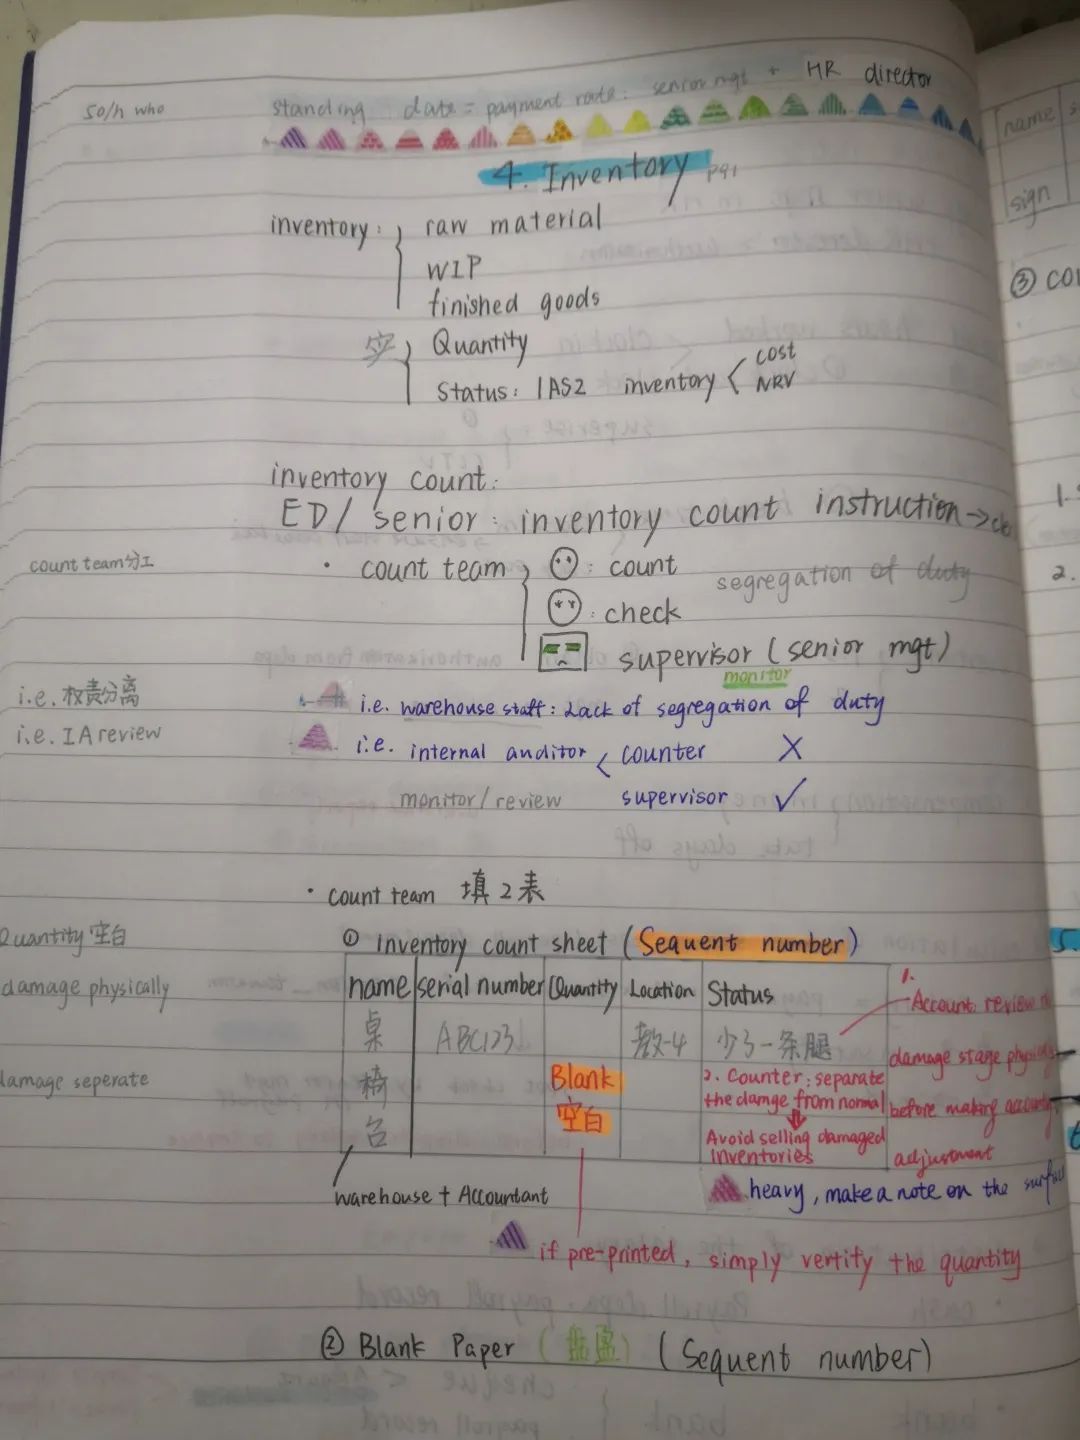 so/h who
standing date = payment rate: senior mgt + HR director
4. Inventory P91
inventory: raw material
WIP
finished goods
Quantity
Status: IAS2 inventory < cost
NRV
inventory count:
ED/ senior: inventory count instruction →
count team分工
· count team : count segregation of duty
: check
supervisor (senior mgt)
monitor
i.e. 权责分离
i.e. warehouse staff: Lack of segregation of duty
i.e. IA review
i.e. internal auditor < counter X
monitor/review supervisor ✓
· count team 填2表
Quantity 空白
① inventory count sheet (Sequent number)
damage physically
name serial number Quantity Location Status
桌 ABC123 教-4 少了一条腿
1. Account. review
damage stage
before making
adjustment
damage seperate
椅 Blank
台 空白
2. Counter: separate
the damge from normal
Avoid selling damaged
inventories
warehouse + Accountant
heavy, make a note on the
if pre-printed, simply vertify the quantity
② Blank Paper (盘盈) (Sequent number)
name
sign
③
1.
2.
5.